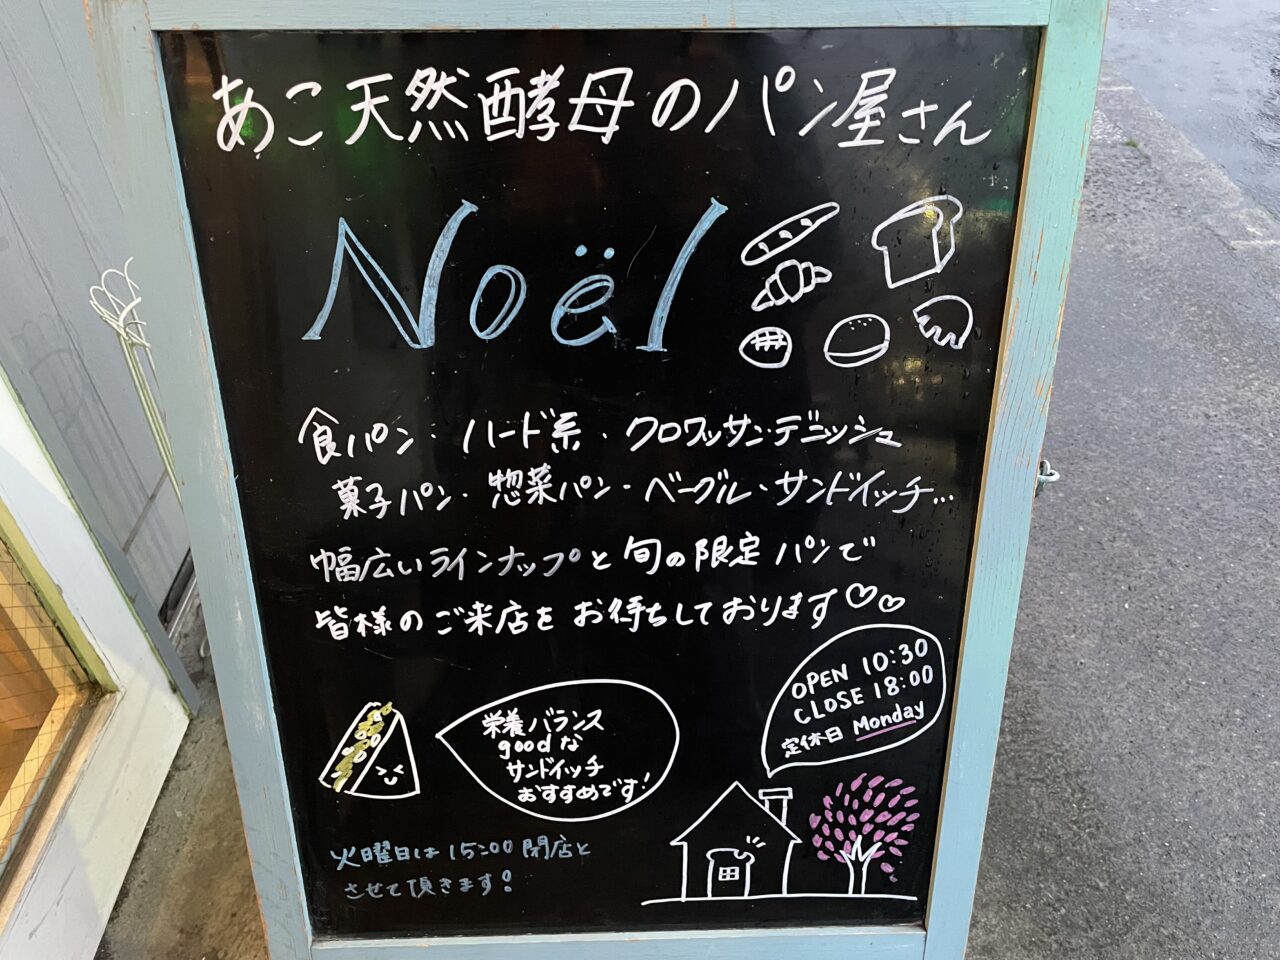 あこ天然酵母のパン屋さん
Noël
食パン・ハード系・クロワッサン・デニッシュ
菓子パン・惣菜パン・ベーグル・サンドイッチ…
幅広いラインナップと旬の限定パンで
皆様のご来店をお待ちしております♡♡
OPEN 10:30
CLOSE 18:00
定休日 Monday
栄養バランス
goodな
サンドイッチ
おすすめです!
火曜日は15:00閉店と
させて頂きます!